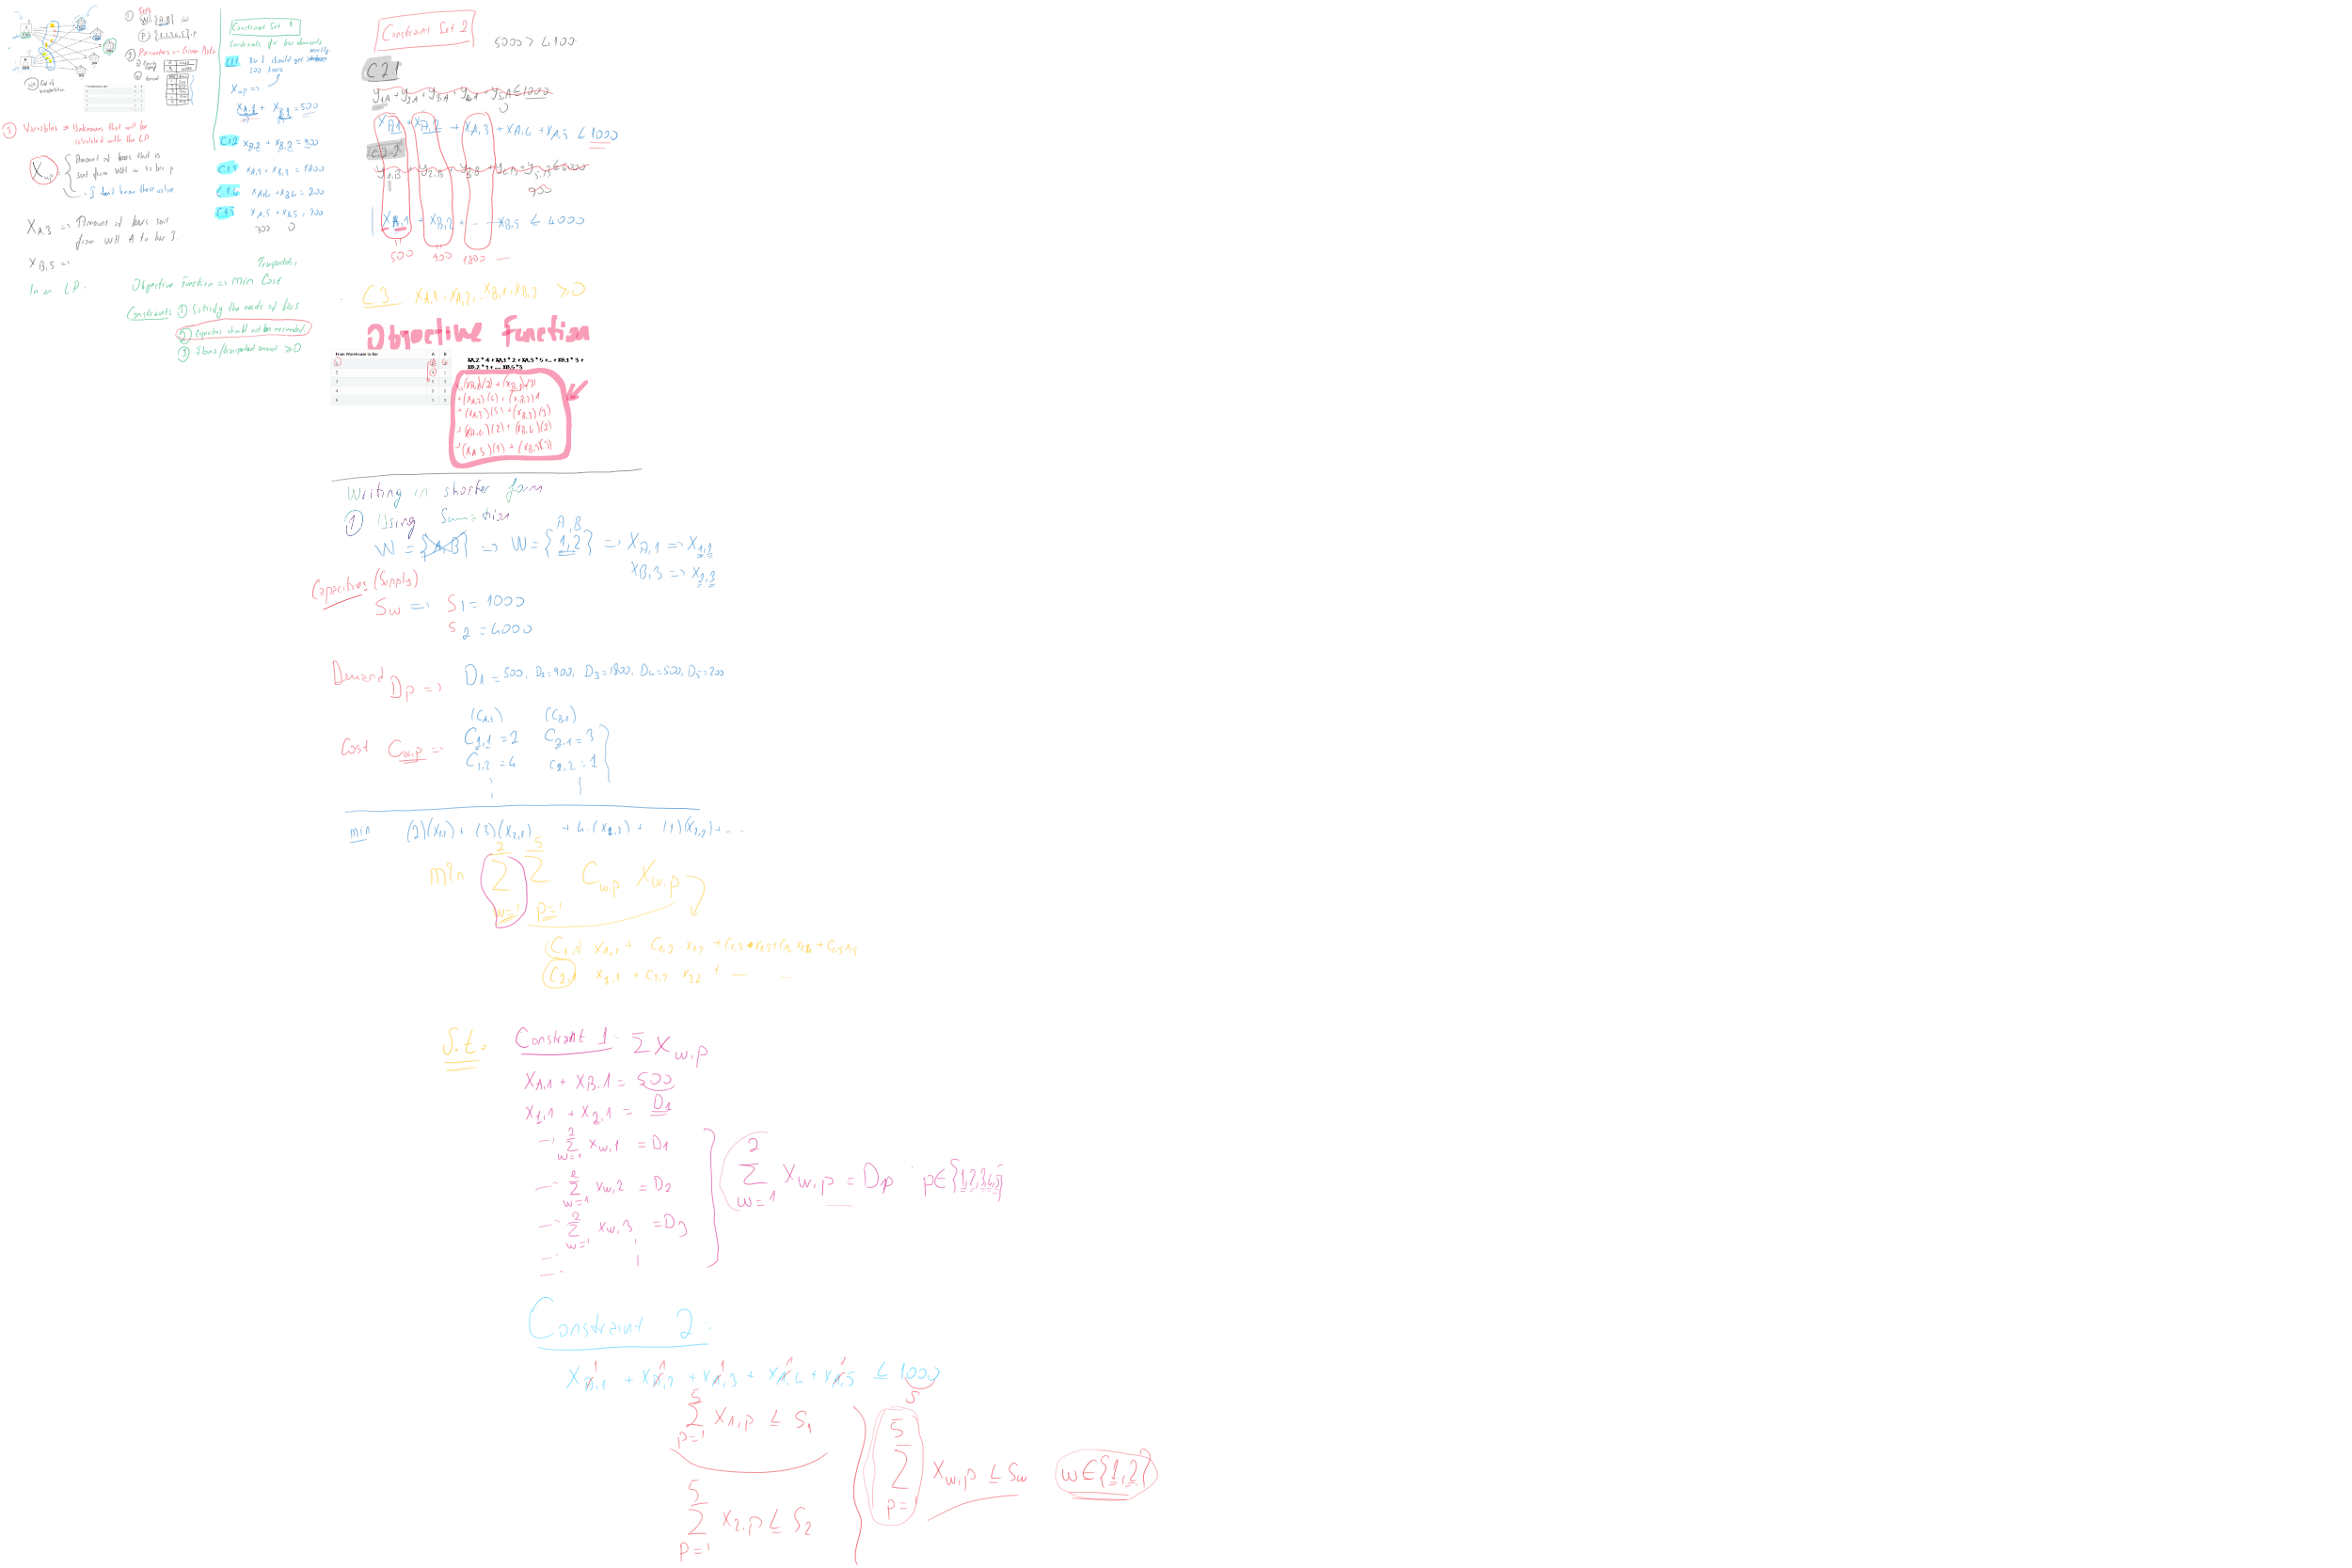 ① Sets
W = {A,B} w
P = {1,2,3,4,5} p
② Parameters => Given Data
Cost of transportation
③ Variables => Unknowns that will be
calculated with the LP
Xwp = { Amount of beers that is
sent from WH w to bar p
I don't know their value
XA,3 => Amount of beers sent
from WH A to bar 3.
XB,5 =>
In an LP.
Transportation
Objective Function => Min Cost
Constraints ① Satisfy the needs of bars
② Capacities should not be exceeded.
③ Items/transported amount ≥ 0
Constraint Set 1
Constraints for bar demands
exactly
C1.1 Bar 1 should get
500 beers
Xwp =>
XA,1 + XB,1 = 500
C1.2 XA,2 + XB,2 = 900
C1.3 XA,3 + XB,3 = 1800
C1.4 XA,4 + XB,4 = 200
C1.5 XA,5 + XB,5 = 700
700 0
Constraint Set 2
5000 > 4100
C2.1
y1,A + y2,A + y3,A + y4,A + y5,A ≤ 1000
0
XA,1 + XA,2 + XA,3 + XA,4 + XA,5 ≤ 1000
C2.2
y1,B + y2,B + y3,B + y4,B + y5,B ≤ 4000
900
XB,1 + XB,2 + ... XB,5 ≤ 4000
500 900 1800
C.3. XA,1, XA,2, .. XB,1, XB,2 ≥ 0
Objective Function
From Warehouse to Bar A B
1 2 3
2 4 1
3 5 3
4 2 2
5 1 3
XA,2 * 4 + XA,1 * 2 + XA,3 * 5 +... + XB,1 * 3 +
XB,2 * 1 + .... XB,5 *3
(XA,1)(2) + (XB,1)(3)
+ (XA,2)(4) + (XB,2)1
+ (XA,3)(5) + (XB,3)(3)
+ (XA,4)(2) + (XB,4)(2)
+ (XA,5)(1) + (XB,5)(3)
Writing in shorter form
① Using Summation
A,B
W = {A,B} => W = {1,2} => XA,1 => X1,1
XB,3 => X2,3
Capacities (Supply)
Sw => S1 = 1000
S2 = 4000
Demand Dp => D1 = 500, D2 = 900, D3 = 1800, D4 = 500, D5 = 200
(CA,1) (CB,1)
Cost Cw,p => C1,1 = 2 C2,1 = 3
C1,2 = 4 C2,2 = 1
min (2)(X1,1) + (3)(X2,1) + 4.(X1,2) + (1)(X2,2) + ...
min Σ(w=1 to 2) Σ(p=1 to 5) Cw,p Xw,p
(C1,1) X1,1 + C1,2 X1,2 + C1,3 X1,3 + C1,4 X1,4 + C1,5 X1,5
C2,1 X2,1 + C2,2 X2,2 +
S.t. Constraint 1. Σ Xw,p
XA,1 + XB,1 = 500
X1,1 + X2,1 = D1
Σ(w=1 to 2) Xw,1 = D1
Σ(w=1 to 2) Xw,2 = D2
Σ(w=1 to 2) Xw,3 = D3
Σ(w=1 to 2) Xw,p = Dp p∈{1,2,3,4,5}
Constraint 2.
XA,1 + XA,2 + XA,3 + XA,4 + XA,5 ≤ 1000
1 1 1 1 1
S
Σ(p=1 to 5) X1,p ≤ S1
Σ(p=1 to 5) X2,p ≤ S2
Σ(p=1 to 5) Xw,p ≤ Sw w∈{1,2}